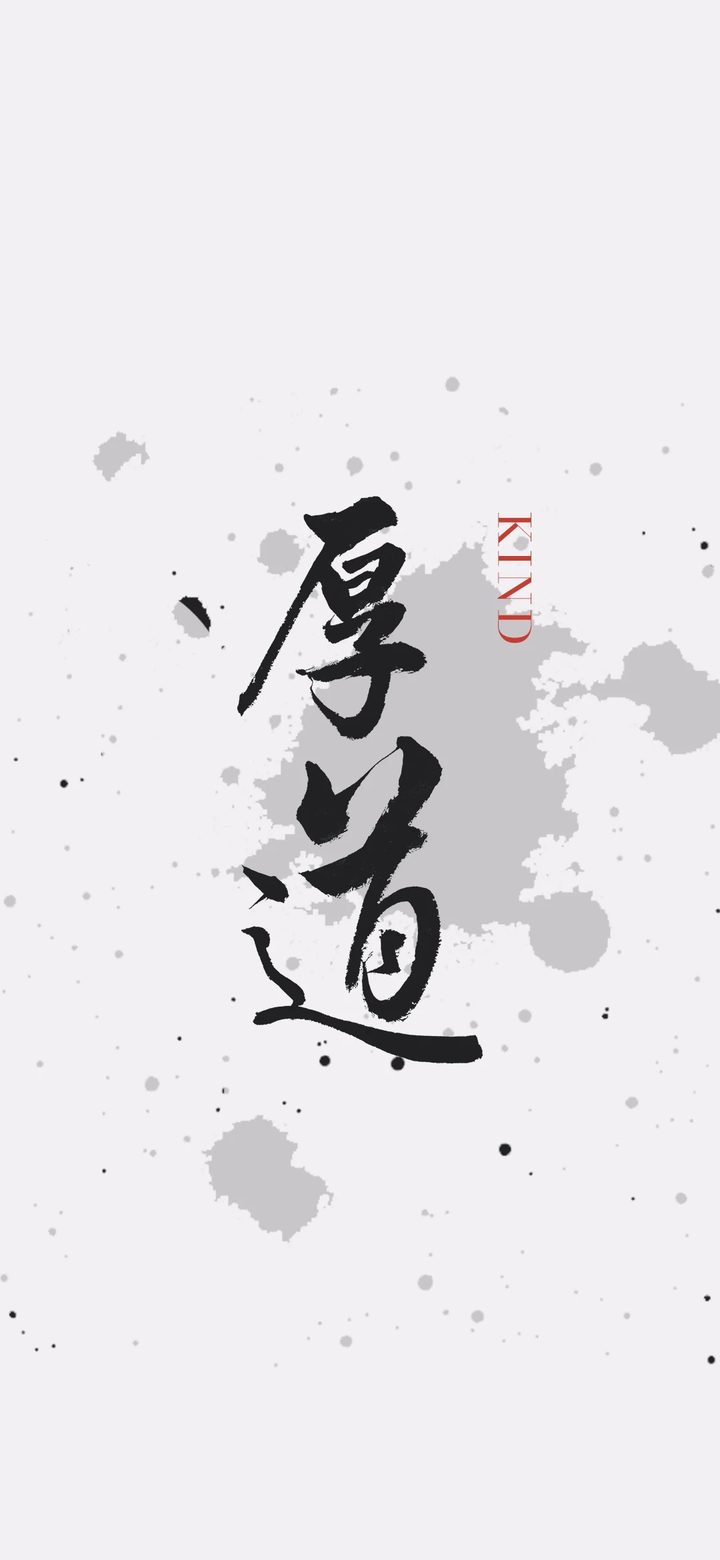 厚道
KIND